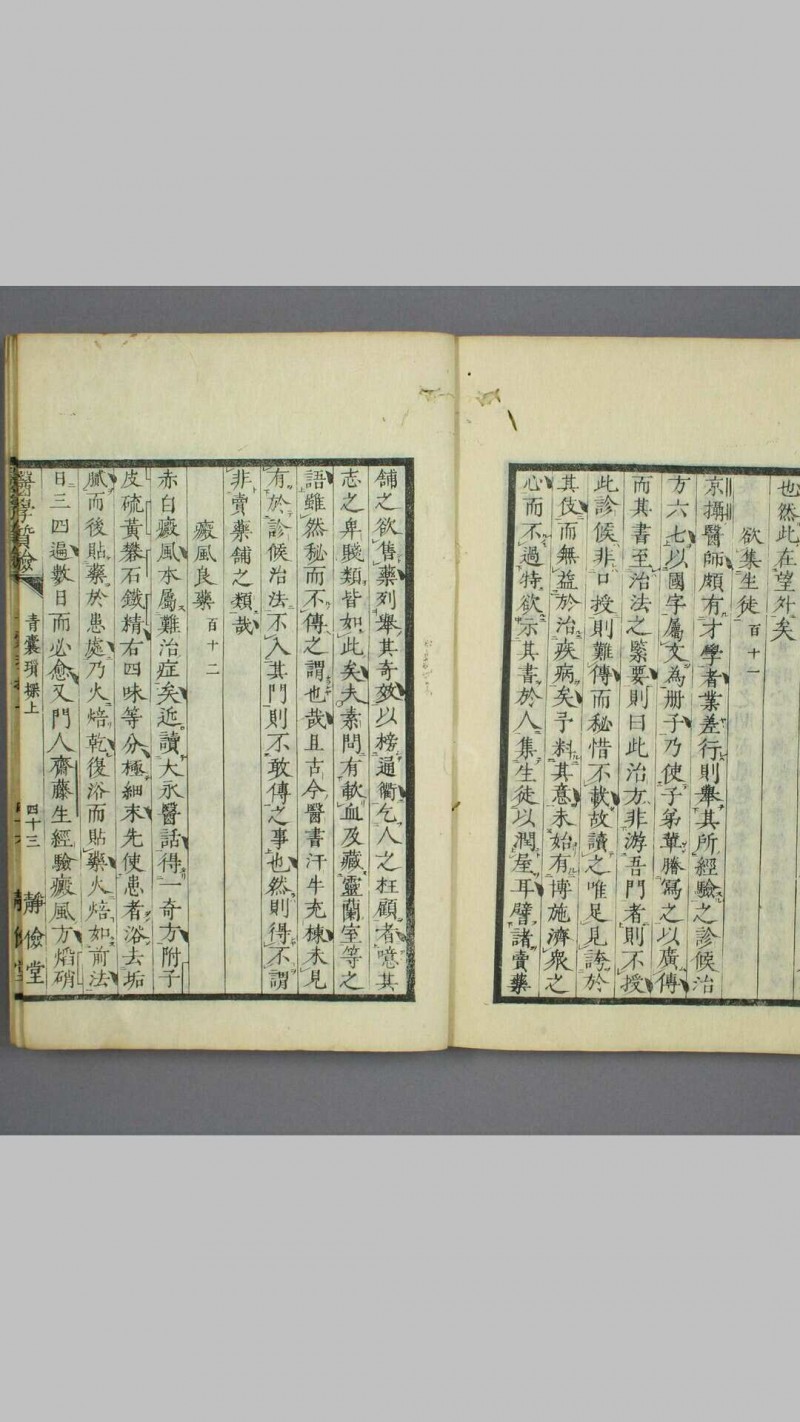 也然此在望外矣
欲集生徒 百十一
京攝醫師頗有才學者業差行則舉其所經驗之診候治
方六七以國字屬文為册子乃使子弟輩謄寫之以廣傳
而其書至治法之緊要則曰此治方非游吾門者則不授
此診候非口授則難傳而秘惜不載故讀之唯足見誇於
其伎而無益於治疾病矣予料其意未始有博施濟衆之
心而不過特欲示其書於人集生徒以潤屋耳譬諸賣藥
舖之欲售藥列舉其奇效以榜通衢乞人之枉顧者噫其
志之卑賤類皆如此矣夫素問有歃血及藏靈蘭室等之
語雖然秘而不傳之謂也哉且古今醫書汗牛充棟未見
有於診候治法不入其門則不敢傳之事也然則得不謂
非賣藥舖之類哉
癜風良藥 百十二
赤白癜風本屬難治症矣近讀大永醫話得一奇方附子
皮硫黃礬石鐵精右四味等分極細末先使患者浴去垢
膩而後貼藥於患處乃火焙乾復浴而貼藥火焙如前法
日三四遍數日而必愈又門人齋藤生經驗癜風方焰硝
青囊瑣探上
四十三
靜儉堂